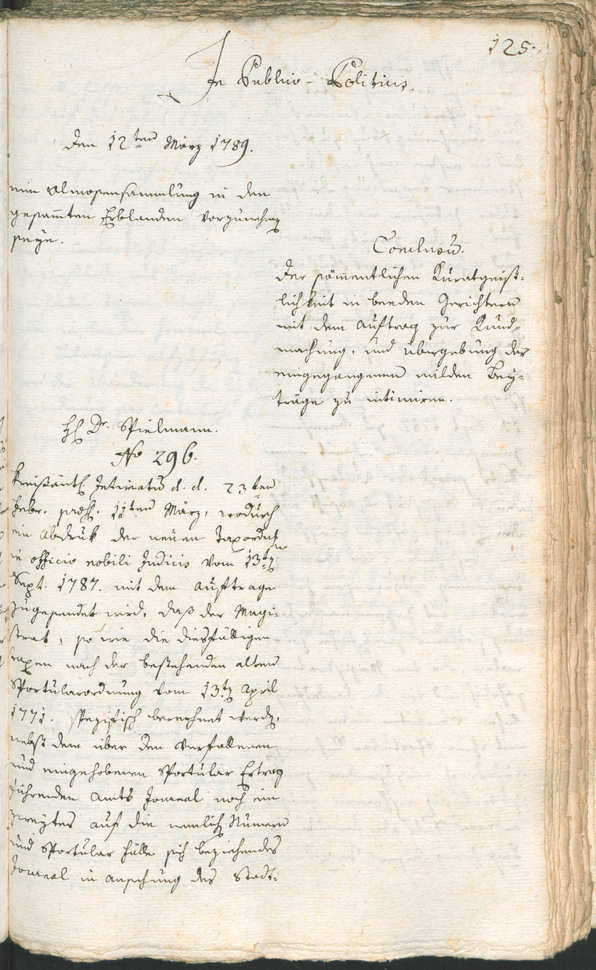 125.
In Publico-Politicis.
Den 12ten März 1789.
eine Almosensammlung in den
gesamten Erblanden vorzunehmen
seye.
Conclusum.
Der sämmentlichen Kuratgeist-
lichkeit in beeden Gerichtern
mit dem Auftrag zur Kund-
machung, und Übergebung der
eingegangenen milden Bey-
träge zu intimiren.
H. Dr. Spielmann.
No 296.
Kreisämtl. Intimatum d. d. 23ten
Febr. praes. 11ten März, wodurch
ein Abdruk der neuen Taxordnung
in officio nobili Judicis vom 13ten
Sept. 1787. mit dem Auftrage
zugesendet wird, daß der Magi-
strat, so wie die diesfälligen
Taxen nach der bestehenden alten
Sportularordnung vom 13ten April
1771. spezifisch berechnet werden,
nebst dem über den verfallenen
und eingehobenen Sportular Ertrag
führenden Amts Journal noch ein
zweytes auf die nemlich Numern
und Sportular Fälle sich beziehendes
Journal in Ansehung des Stadt-